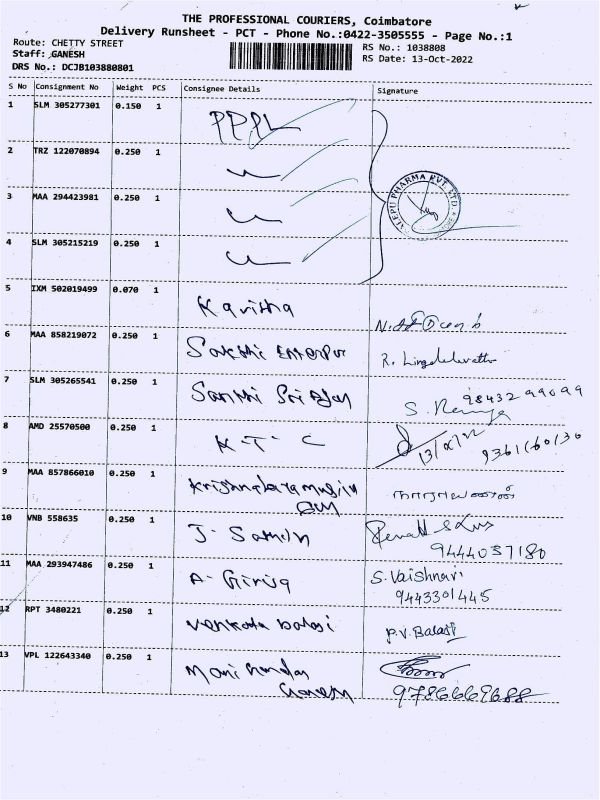 THE PROFESSIONAL COURIERS, Coimbatore
Delivery Runsheet - PCT - Phone No.:0422-3505555 - Page No.:1
Route: CHETTY STREET
RS No.: 1038808
Staff: GANESH
RS Date: 13-Oct-2022
DRS No.: DCJB103880801
S No Consignment No Weight PCS Consignee Details Signature
1 SLM 305277301 0.150 1 PPPL
2 TRZ 122070894 0.250 1
3 MAA 294423981 0.250 1
PHARMA PVT. LTD.
4 SLM 305215219 0.250 1
5 IXM 502019499 0.070 1 Kavitha
6 MAA 858219072 0.250 1 Sakthi R.
7 SLM 305265541 0.250 1 Santhi 98432 99099
S. Ramya
8 AMD 25570500 0.250 1 K.T. C 9361160130
9 MAA 857866010 0.250 1
10 VNB 558635 0.250 1 J. 9444037180
11 MAA 293947486 0.250 1 A. S. Vaishnavi
9443301445
12 RPT 3480221 0.250 1 Venkata balaji P.V. Balaji
13 VPL 122643340 0.250 1 Mani
Ganesh 9786669688